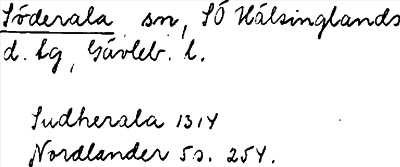 Söderala sn, SÖ Hälsinglands
d. lg, Gävleb. l.
Sudherala 1314
Nordlander 5 s. 254.